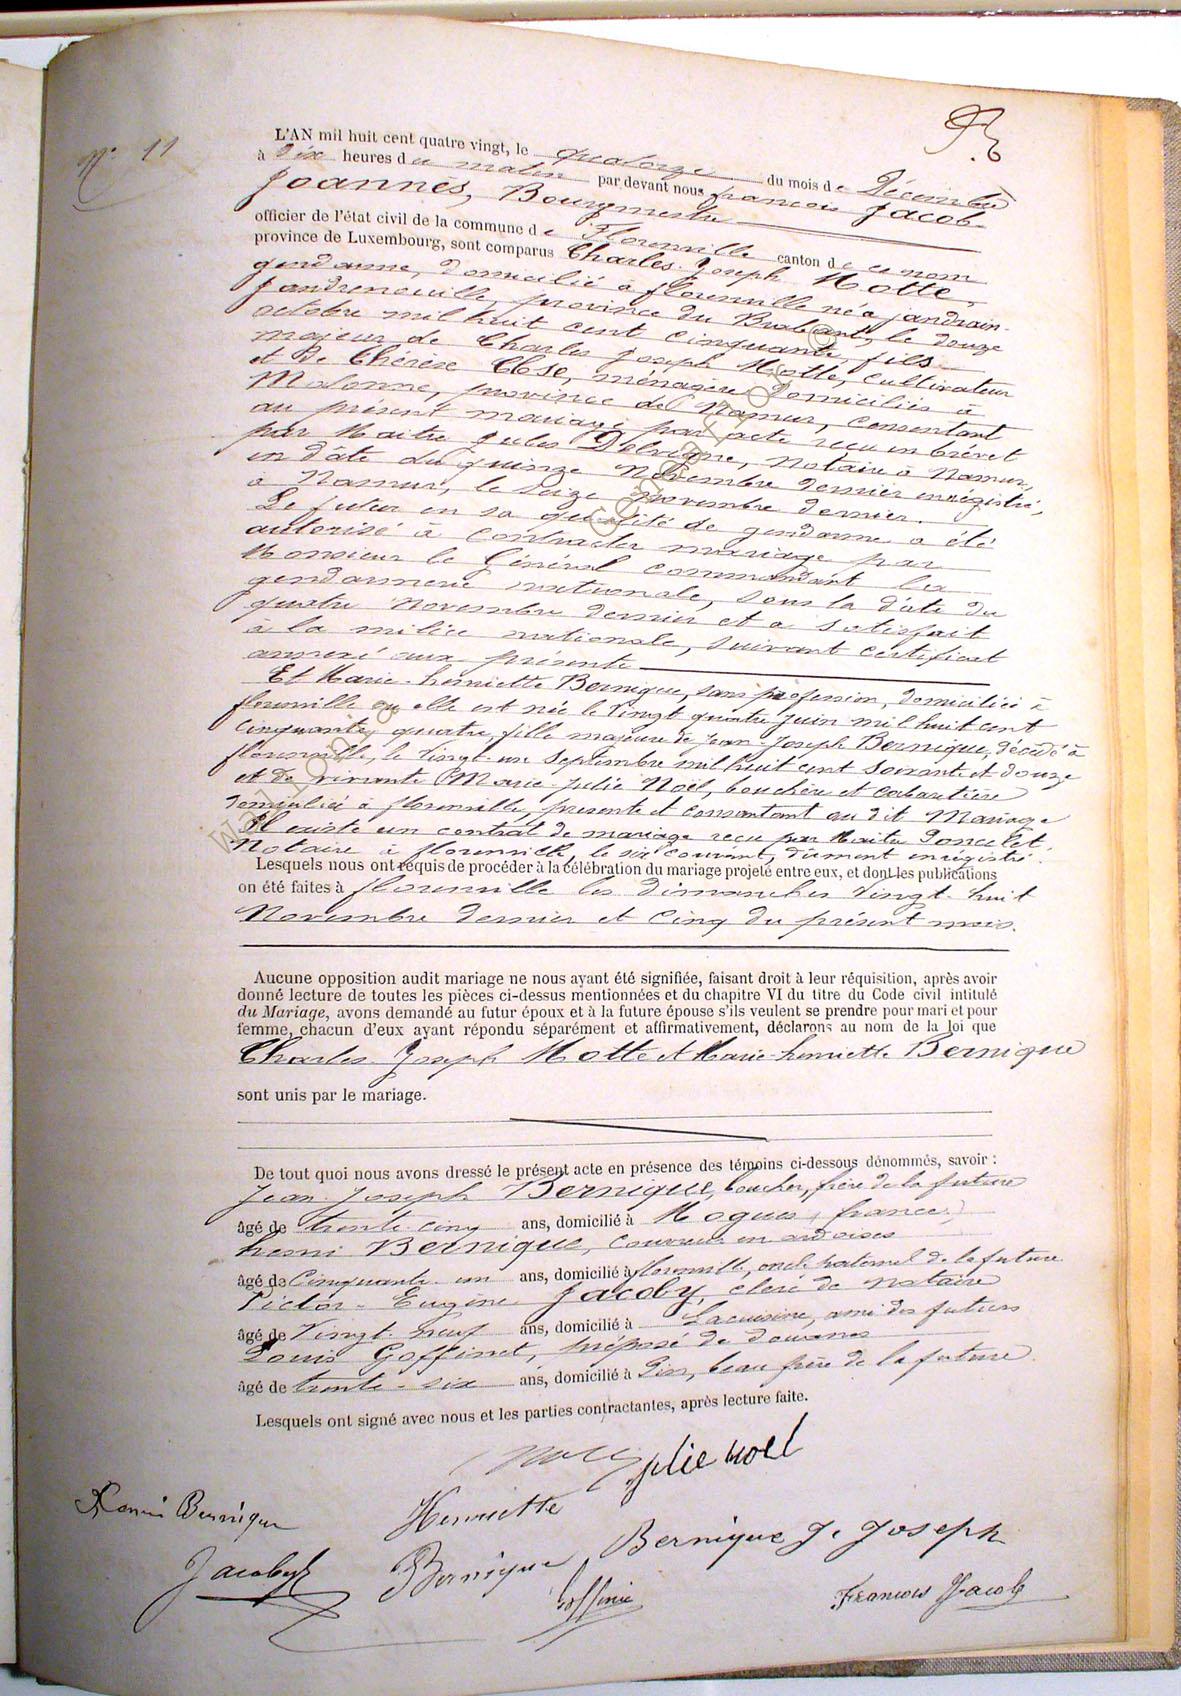 N° 11
L'AN mil huit cent quatre vingt, le quatorze du mois de Décembre
à Dix heures du matin par devant nous françois Jacob-
Joannès, Bourgmestre
officier de l'état civil de la commune de Florenville canton de ce nom
province de Luxembourg, sont comparus Charles-Joseph Motte,
gendarme, domicilié à florenville né à jandrain-
jandrenouille, province du Brabant, le douze
octobre mil huit cent cinquante, fils
majeur de Charles joseph Motte, cultivateur
et de Thérèse Close, ménagère domiciliés à
Malonne, province de Namur, consentant
au présent mariage par acte reçu en brévet
par Maitre jules Delvigne, notaire à Namur,
en date du quinze Novembre dernier enrégistré,
à Namur, le seize novembre dernier.
Le futur en sa qualité de gendarme a été
autorisé à contracter mariage par
Monsieur le Général commandant la
gendarmerie nationale, sous la date du
quatre novembre dernier et a satisfait
à la milice nationale, suivant certificat
annexé aux présente
Et Marie-henriette Bernique, sans profession, domiciliée à
florenville ou elle est née le vingt quatre juin mil huit cent
cinquante quatre, fille majeure de Jean-Joseph Bernique, décédé à
florenville, le vingt-un septembre mil huit cent soixante et douze
et de vivante Marie-julie Noël, bouchère et cabaretière
domiciliée à florenville, présente et consentant au dit Mariage
Il existe un contrat de mariage reçu par Maitre Poncelet,
Notaire à florenville, le six courant, dûment enrégistré.
Lesquels nous ont requis de procéder à la célébration du mariage projeté entre eux, et dont les publications
on été faites à florenville les dimanches vingt-huit
Novembre dernier et cinq du présent mois.
Aucune opposition audit mariage ne nous ayant été signifiée, faisant droit à leur réquisition, après avoir
donné lecture de toutes les pièces ci-dessus mentionnées et du chapitre VI du titre du Code civil intitulé
du Mariage, avons demandé au futur époux et à la future épouse s'ils veulent se prendre pour mari et pour
femme, chacun d'eux ayant répondu séparément et affirmativement, déclarons au nom de la loi que
Charles-Joseph Motte et Marie-henriette Bernique
sont unis par le mariage.
De tout quoi nous avons dressé le présent acte en présence des témoins ci-dessous dénommés, savoir :
Jean-Joseph Bernique, boucher, frère de la future
âgé de trente-cinq ans, domicilié à Mogues (france)
henri Bernique, couvreur en ardoises
âgé de Cinquante-un ans, domicilié à florenville, oncle paternel de la future
Victor-Eugène Jacoby, clerc de notaire
âgé de vingt-neuf ans, domicilié à Lacuisine, ami des futurs
Louis Goffinet, préposé de douanes
âgé de trente-six ans, domicilié à Izel, beau frère de la future
Lesquels ont signé avec nous et les parties contractantes, après lecture faite.
julie noel
Henri Bernique
Henriette
Bernique J. Joseph
Jacoby
Bernique
Goffinet
Francois Jacob